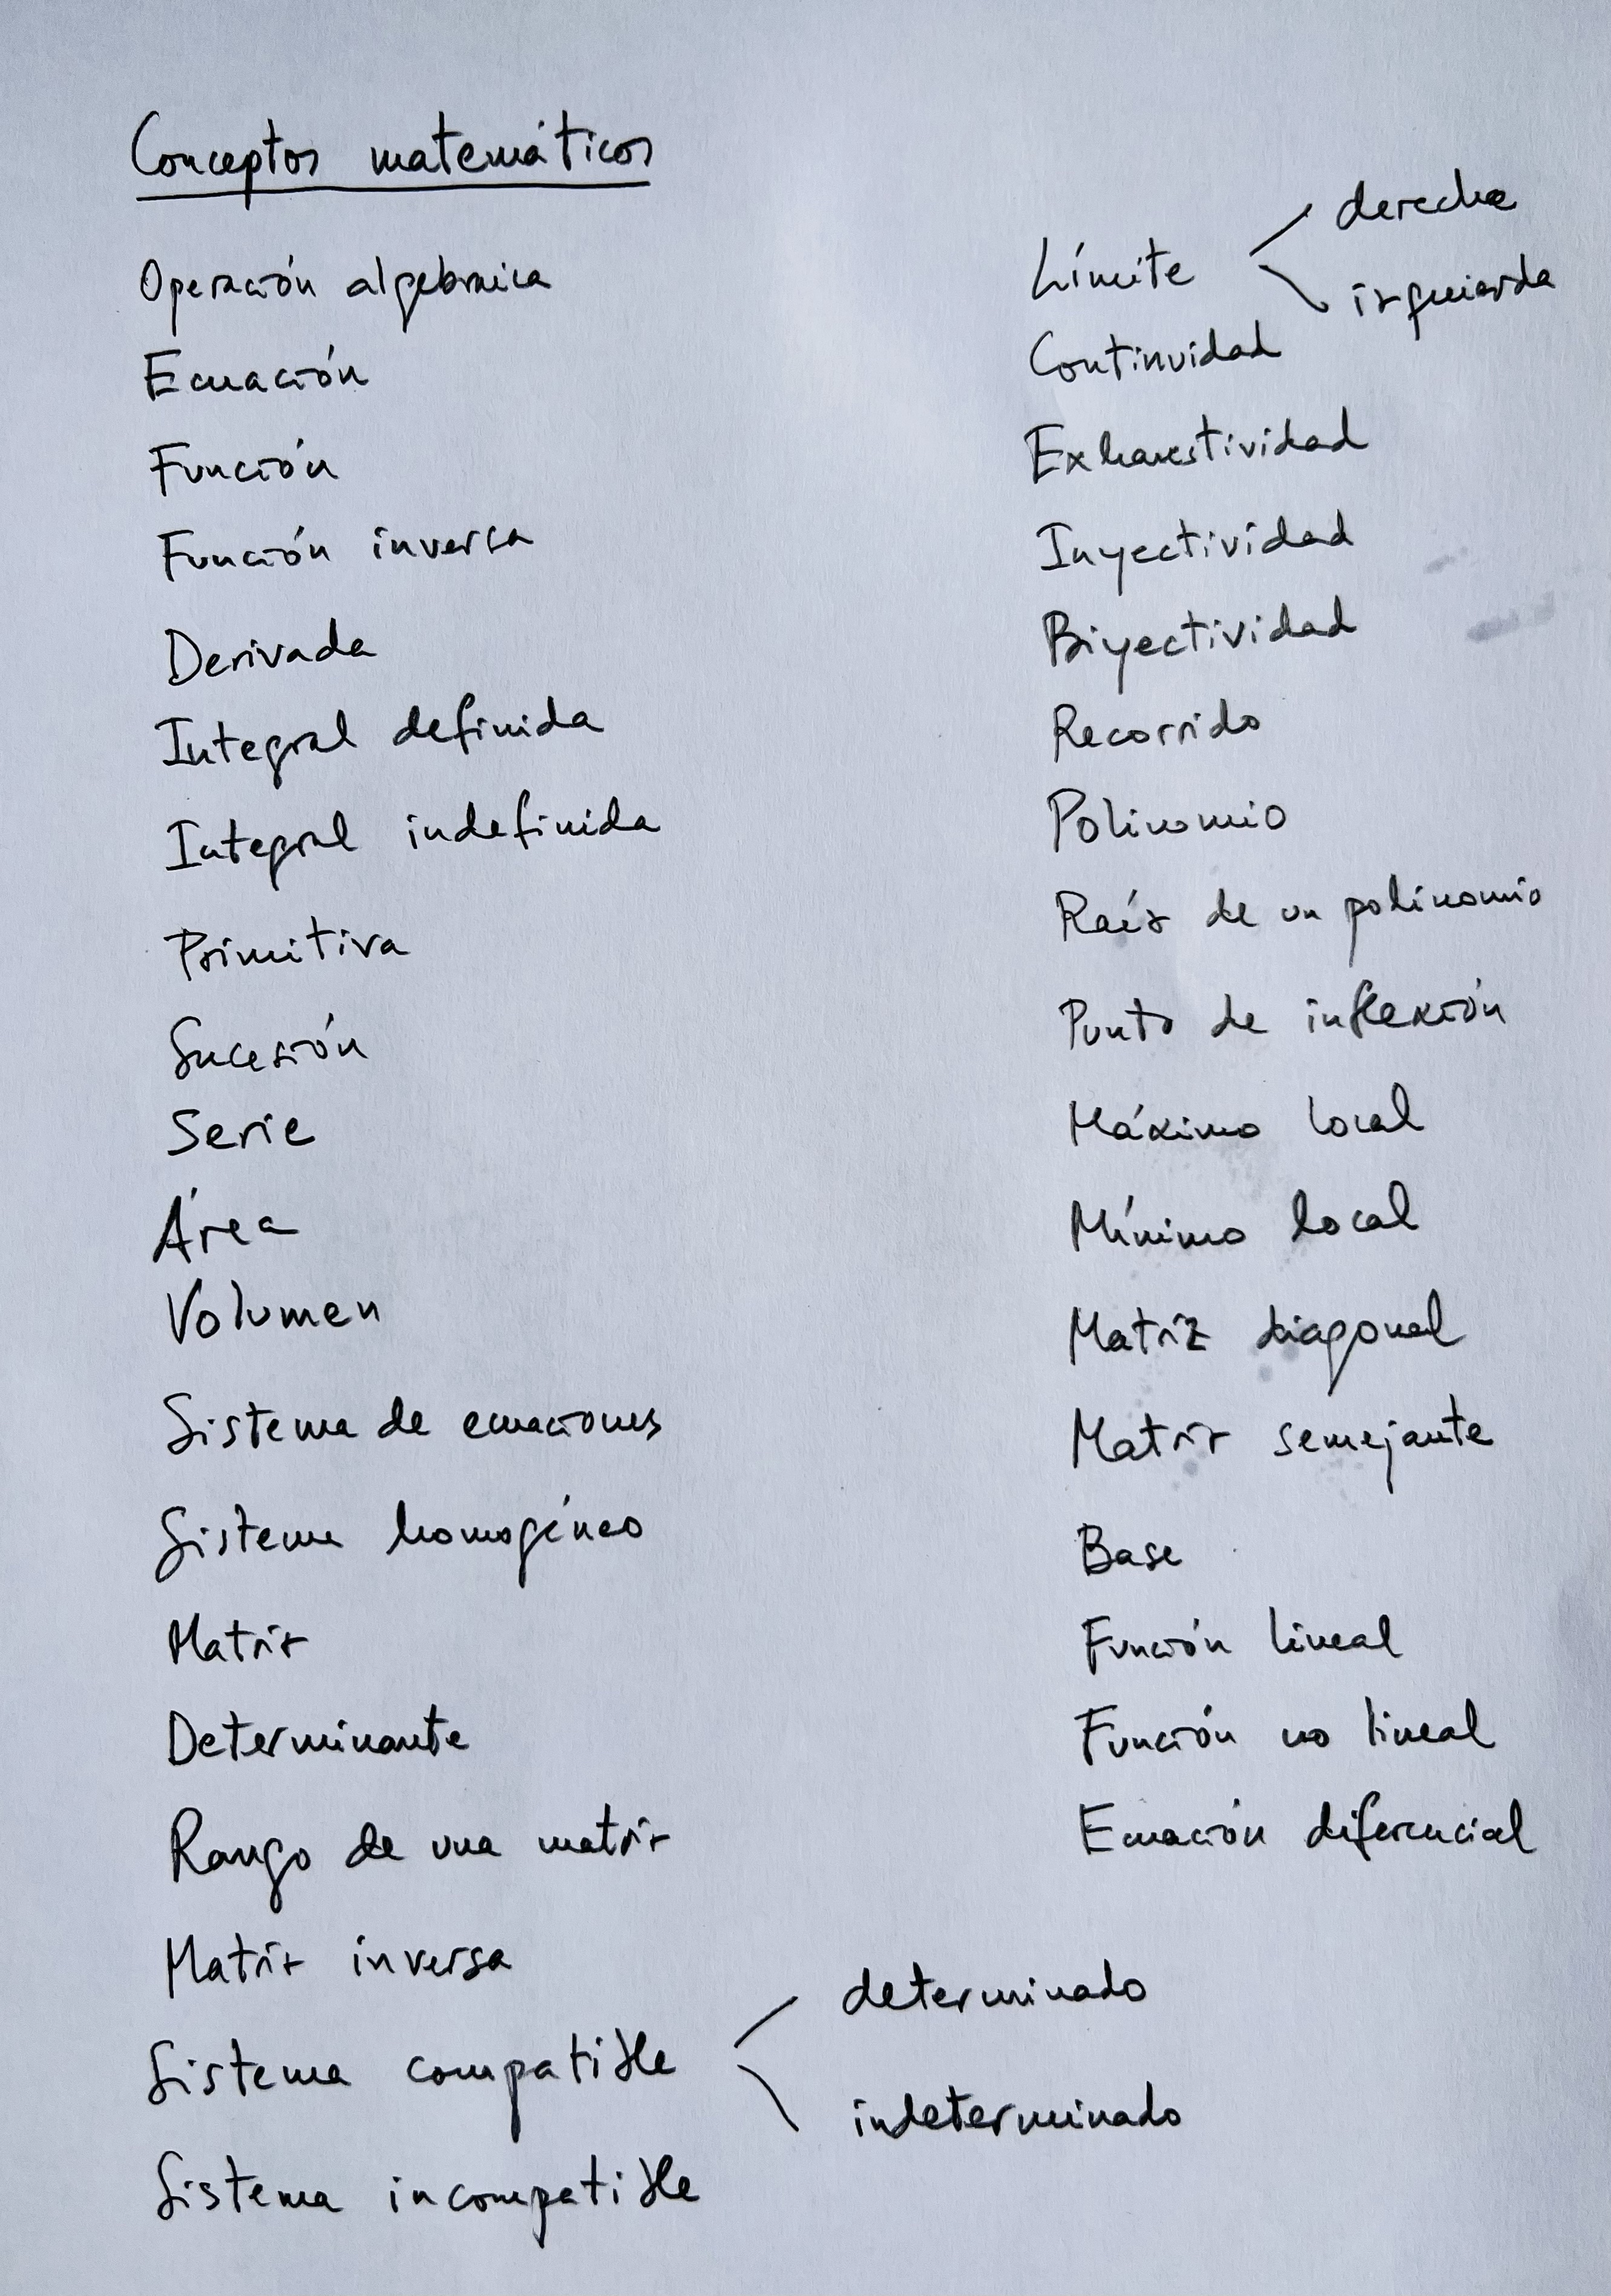 Conceptos matemáticos
Operación algebraica
Ecuación
Función
Función inversa
Derivada
Integral definida
Integral indefinida
Primitiva
Sucesión
Serie
Área
Volumen
Sistema de ecuaciones
Sistema homogéneo
Matriz
Determinante
Rango de una matriz
Matriz inversa
Sistema compatible
determinado
indeterminado
Sistema incompatible
Límite
derecha
izquierda
Continuidad
Exhaustividad
Inyectividad
Biyectividad
Recorrido
Polinomio
Raíz de un polinomio
Punto de inflexión
Máximo local
Mínimo local
Matriz diagonal
Matriz semejante
Base
Función lineal
Función no lineal
Ecuación diferencial